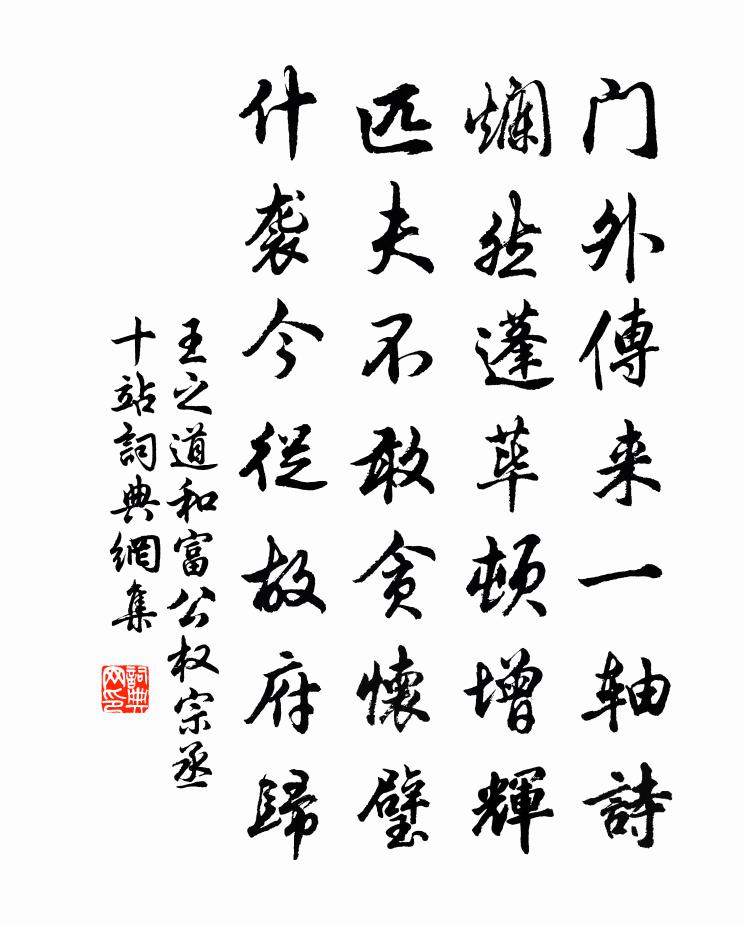 门外傳来一轴詩
爛然蓬荜顿增輝
匹夫不敢贪懷璧
什袭今從故府歸
王之道和富公权宗丞
十站詞典網集
詞典网印